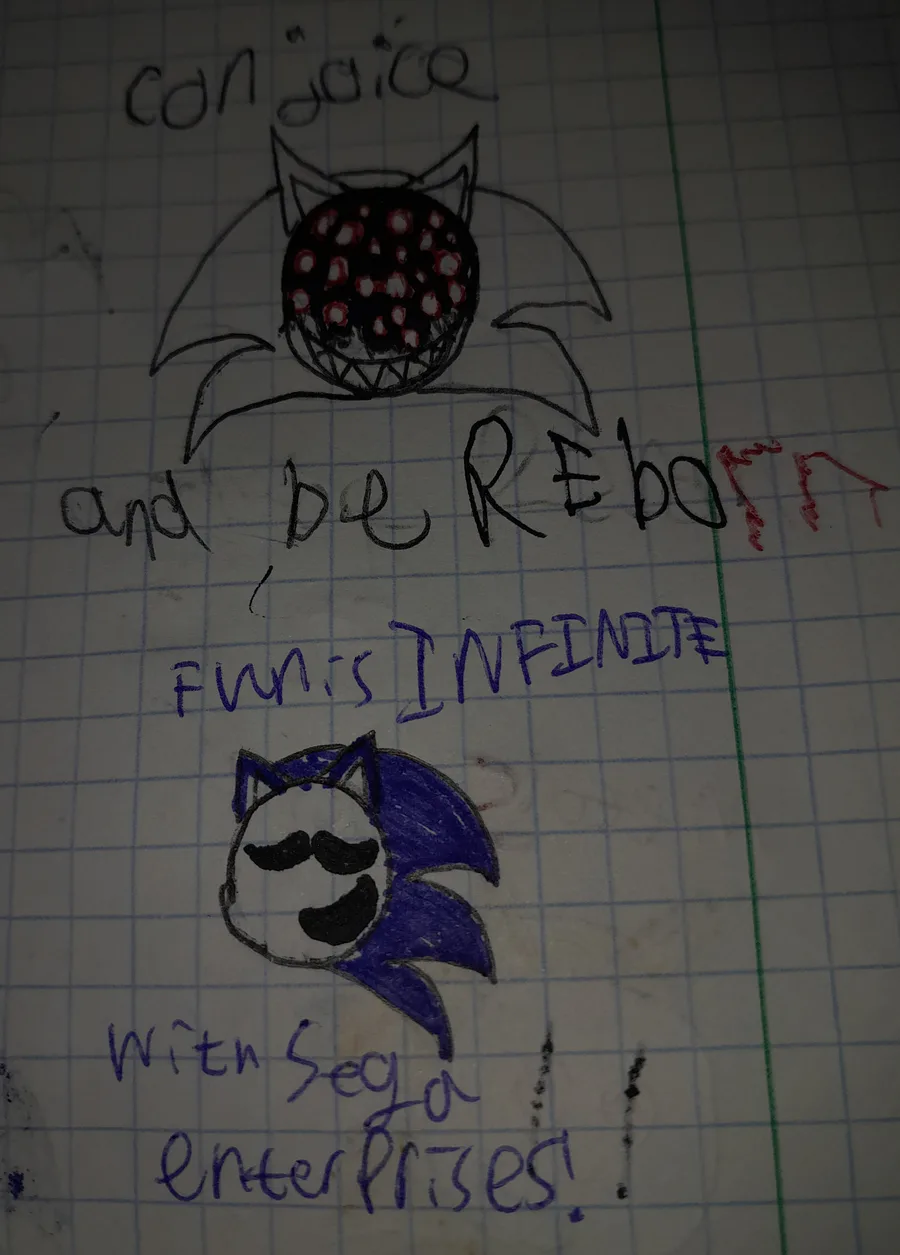 can joice
and be REborn
Fun is INFINITE
With Sega
enterPrises!!